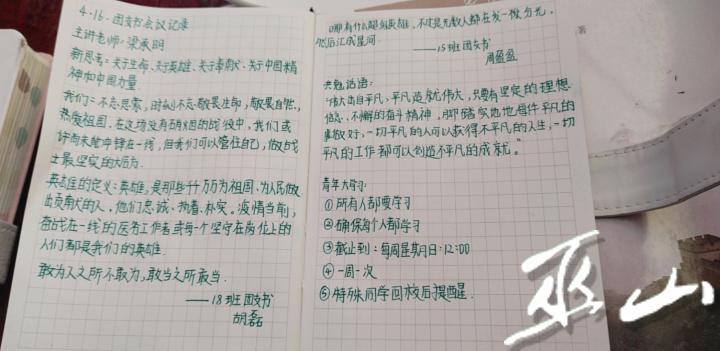 4.16. 团支书会议记录
主讲老师：梁家明
新思考：关于生命、关于英雄、关于奉献、关于中国精
神和中国力量.
我们：不忘思索，时刻不忘敬畏生命，敬畏自然，
热爱祖国.在这场没有硝烟的战役中，我们或
许尚未能冲锋在一线，但我们可以管住自己，做战
士最坚实的大后方.
英雄的定义：英雄，是那些千万万为祖国、为人民做
出贡献的人.他们忠诚、执着、朴实。疫情当前，
奋战在一线的医者工作者或每个坚守在岗位上的
人们都是我们的英雄.
敢为人之所不敢为，敢当之所敢当.
——18班团支书
胡磊
哪有什么超级英雄，不过是无数人都在发一微分光，
然后汇成星河.
——15班团支书
周盈盈
共勉话语：
“伟大出自平凡，平凡造就伟大，只要有坚定的理想
信念、不懈的奋斗精神，脚踏实地地每件平凡的
事做好，一切平凡的人可以获得不平凡的人生，一切
平凡的工作都可以创造不平凡的成就。”
青年大学习：
①所有人都要学习
②确保每个人都学习
③截止到：每周星期日·12:00
④一周一次
⑤特殊同学回校后提醒.
巫山